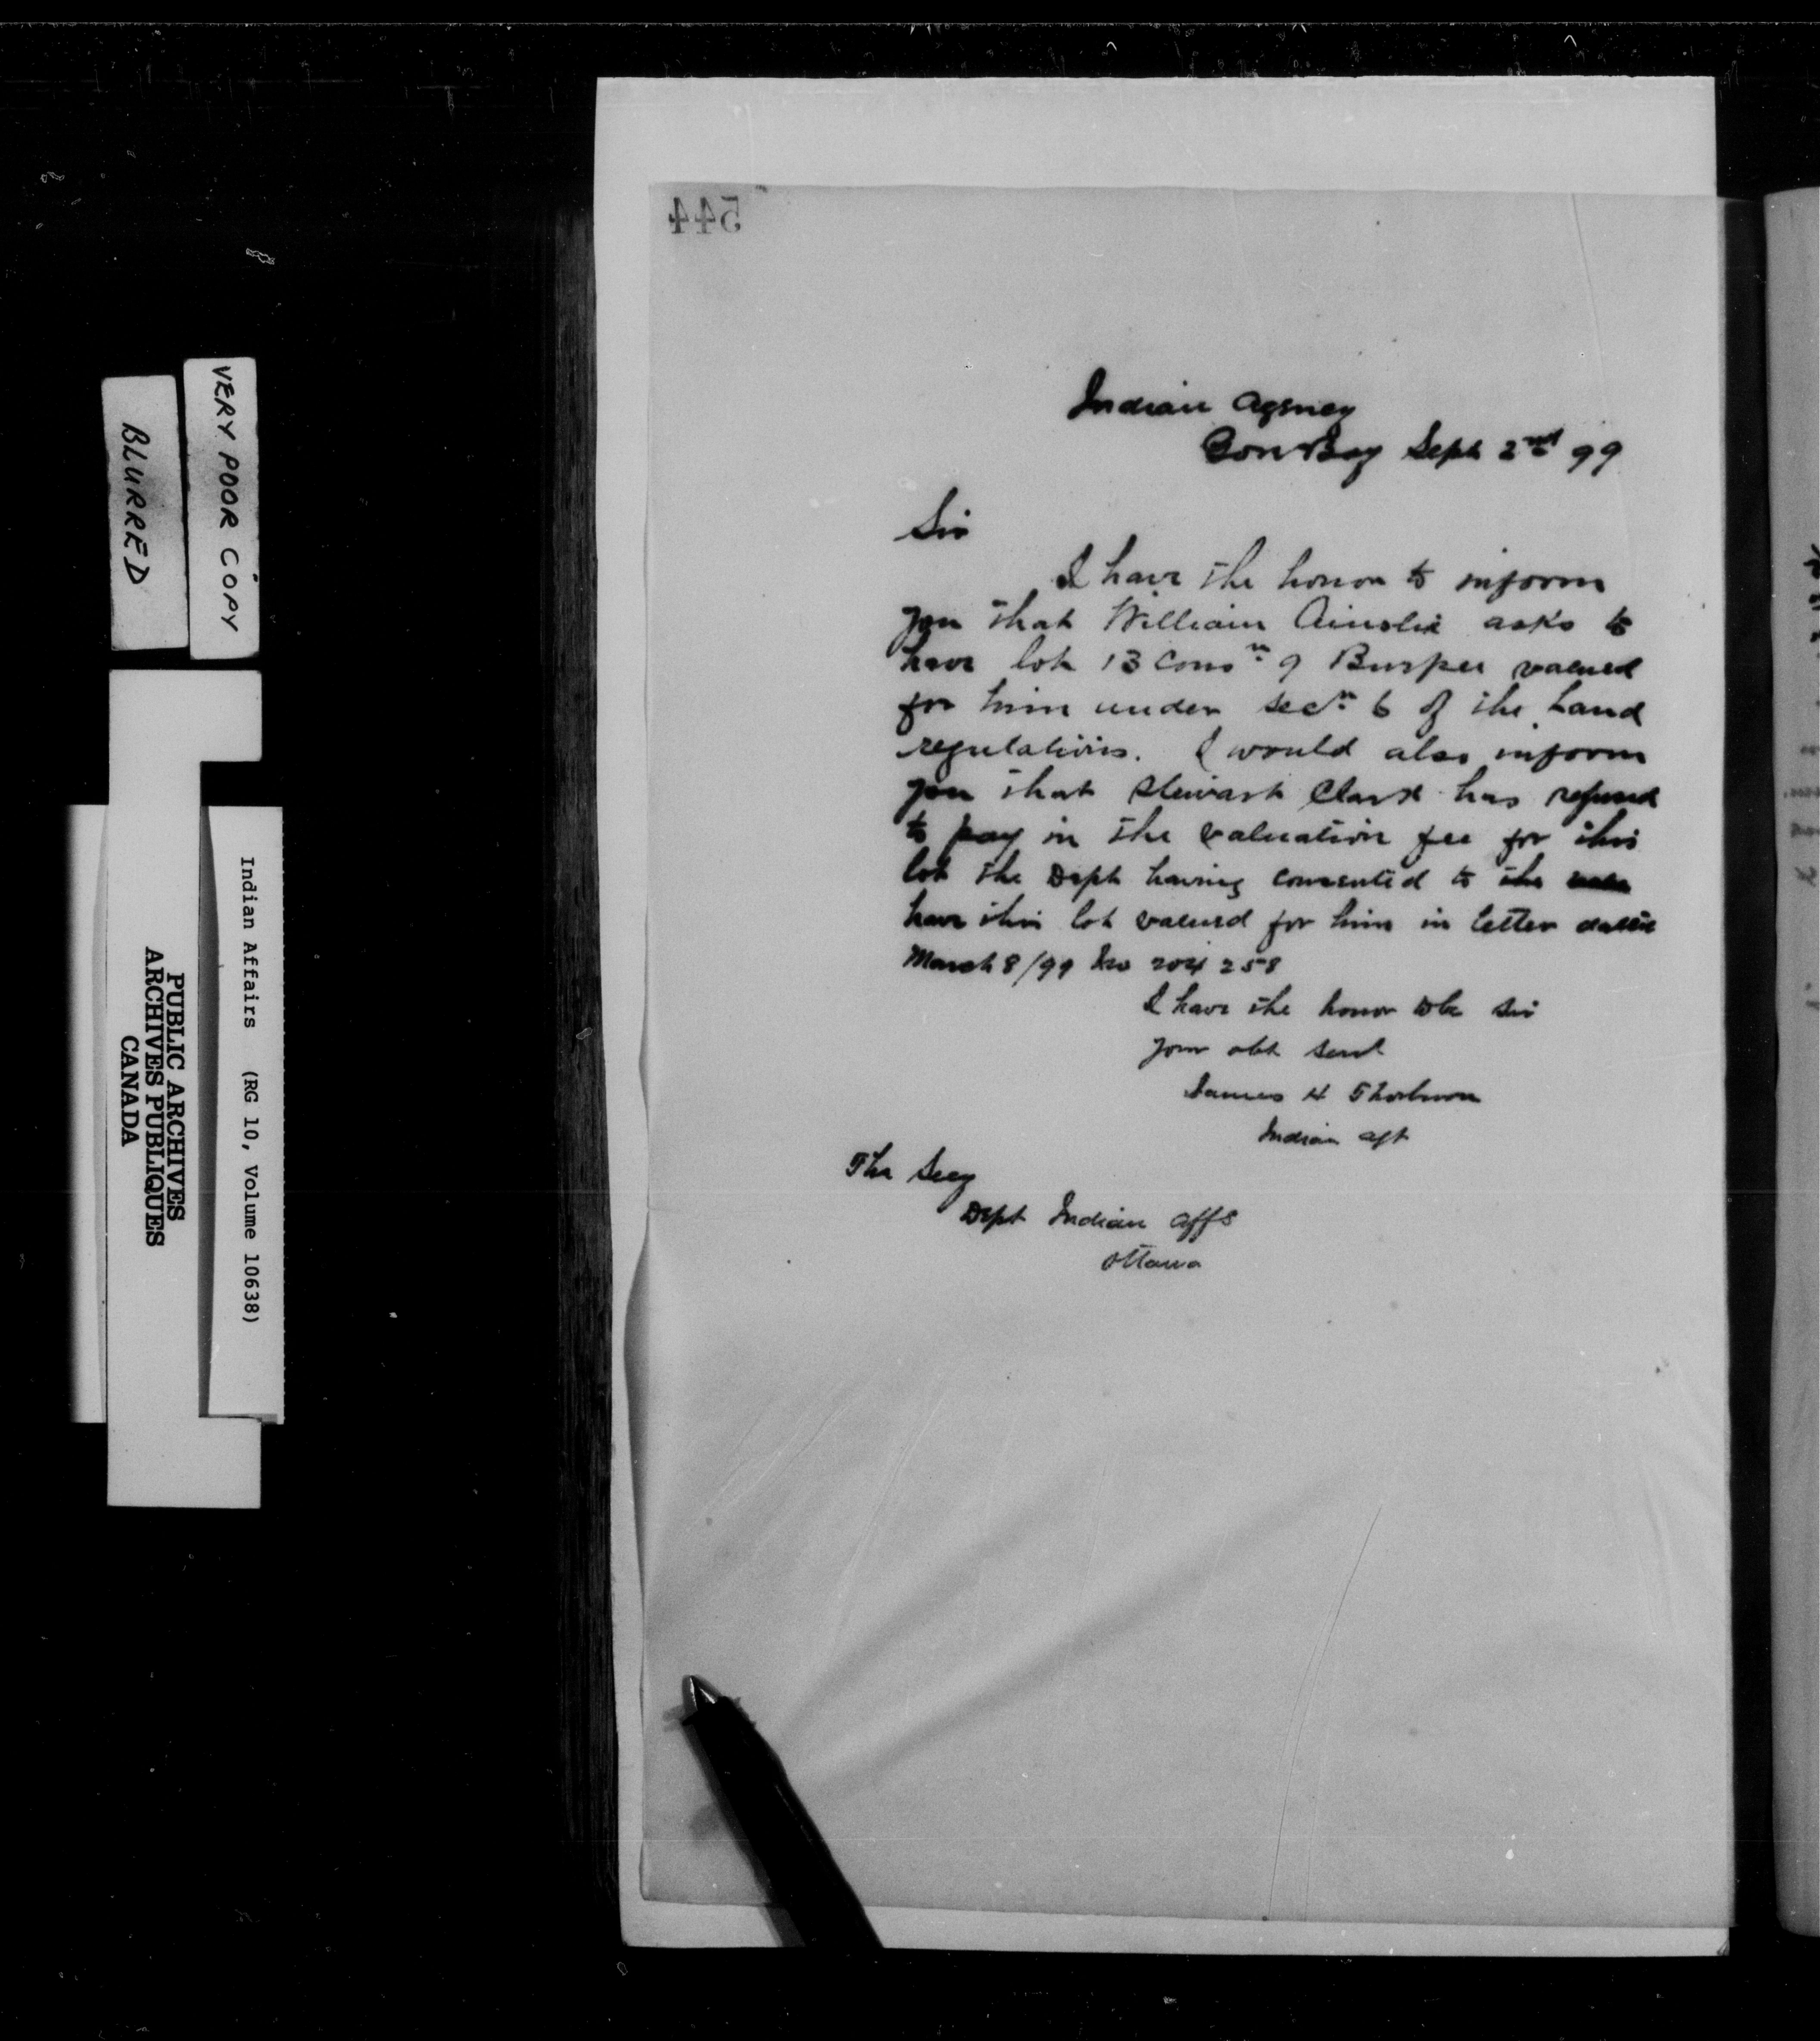 544
Indian Agency
Gore Bay Sept 2nd 99
Sir
I have the honor to inform
you that William Ainslie asks to
have lot 13 Consn 9 Burpee valued
for him under secn 6 of the Land
regulations. I would also inform
you that Stewart Clark has refused
to pay in the valuation fee for this
lot the Dept having consented to the
have this lot valued for him in letter
March 8/99 No 204 258
I have the honor to be Sir
your obt Servt
James H Thorburn
Indian agt
The Secy
Dept Indian Affs
Ottawa
VERY POOR COPY
BLURRED
Indian Affairs (RG 10, Volume 10638)
PUBLIC ARCHIVES
ARCHIVES PUBLIQUES
CANADA